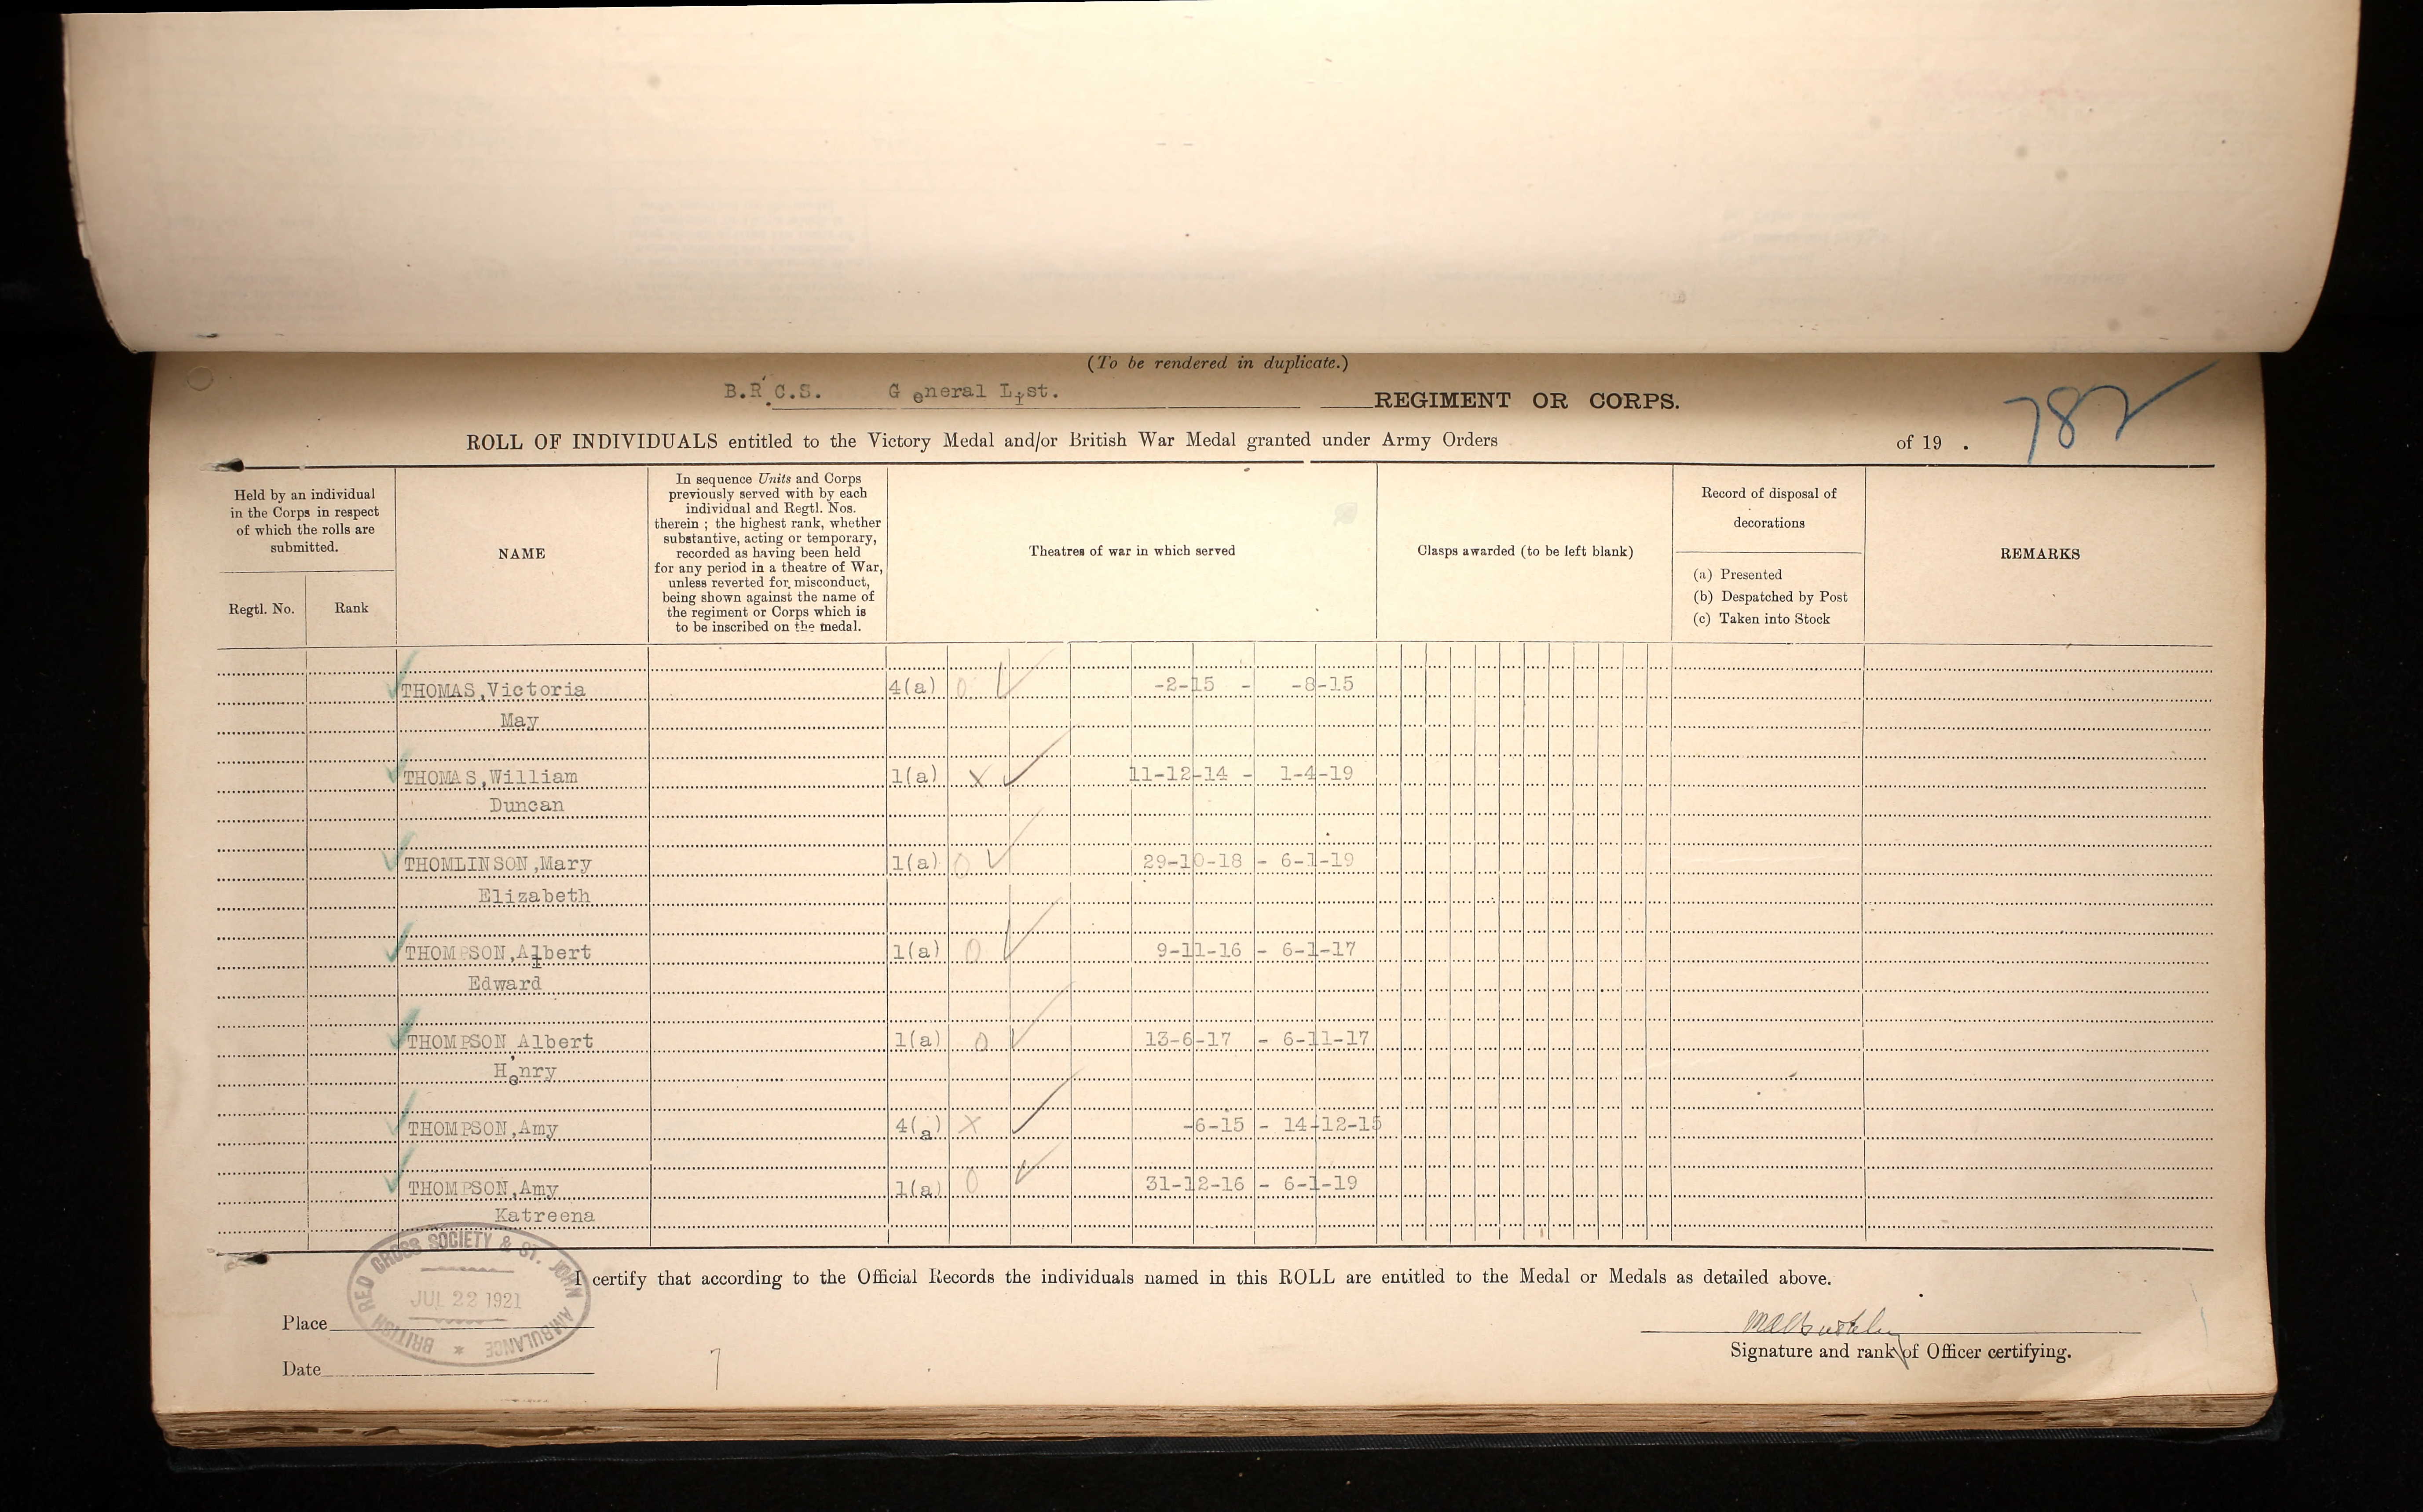 (To be rendered in duplicate.)
B.R.C.S. General List. REGIMENT OR CORPS.
782
ROLL OF INDIVIDUALS entitled to the Victory Medal and/or British War Medal granted under Army Orders of 19 .
Held by an individual
in the Corps in respect
of which the rolls are
submitted.
Regtl. No.
Rank
NAME
In sequence Units and Corps
previously served with by each
individual and Regtl. Nos.
therein ; the highest rank, whether
substantive, acting or temporary,
recorded as having been held
for any period in a theatre of War,
unless reverted for misconduct,
being shown against the name of
the regiment or Corps which is
to be inscribed on the medal.
Theatres of war in which served
Clasps awarded (to be left blank)
Record of disposal of
decorations
(a) Presented
(b) Despatched by Post
(c) Taken into Stock
REMARKS
THOMAS,Victoria 4(a) 0 -2-15 - -8-15
May
THOMAS,William 1(a) X 11-12-14 - 1-4-19
Duncan
THOMLINSON,Mary 1(a) 0 29-10-18 - 6-1-19
Elizabeth
THOMPSON,Albert 1(a) 0 9-11-16 - 6-1-17
Edward
THOMPSON,Albert 1(a) 0 13-6-17 - 6-11-17
Henry
THOMPSON,Amy 4(a) X -6-15 - 14-12-15
THOMPSON,Amy 1(a) 0 31-12-16 - 6-1-19
Katreena
BRITISH RED CROSS SOCIETY & ST. JOHN AMBULANCE *
JUL 22 1921
I certify that according to the Official Records the individuals named in this ROLL are entitled to the Medal or Medals as detailed above.
Place
Signature and rank of Officer certifying.
Date
7